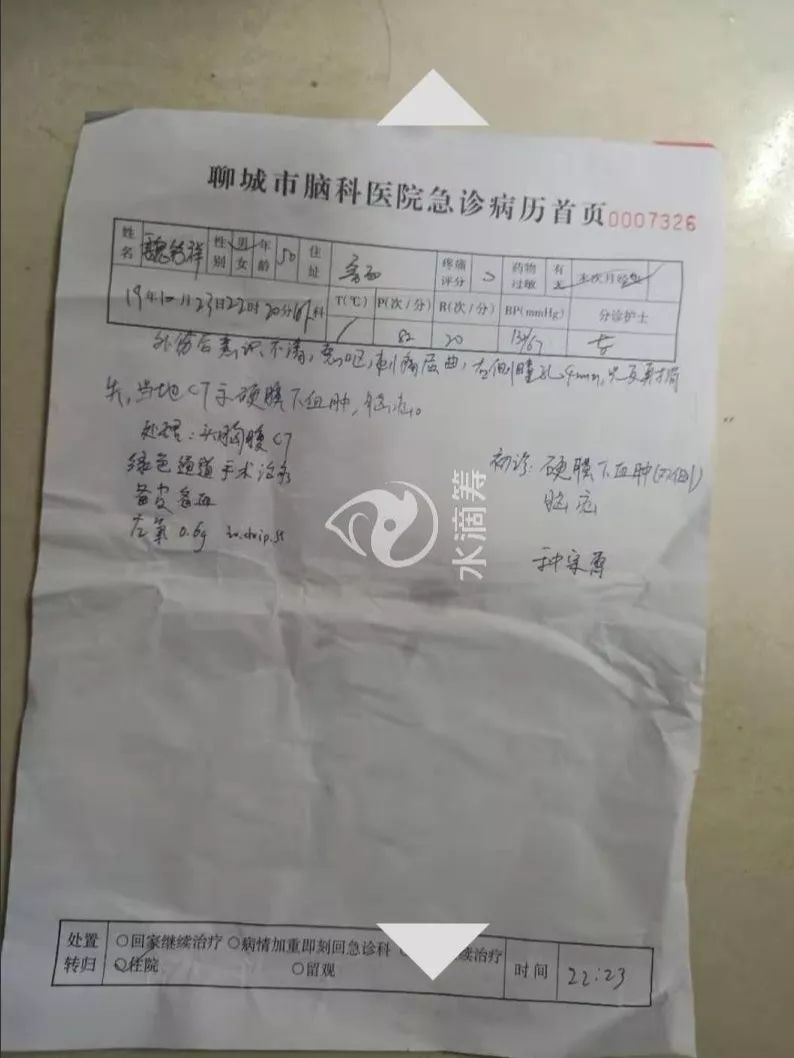 聊城市脑科医院急诊病历首页0007326
姓名 性别 男 女 年龄 50 住址 疼痛评分 药物过敏 有 无 末次月经
19年10月23日22时20分 科 T(℃) P(次/分) R(次/分) BP(mmHg) 分诊护士
/ 82 20 134/67
外伤后意识不清,恶呕,刺痛屈曲,左侧瞳孔4mm,光反射消
失,当地CT示硬膜下血肿,脑疝。
处理:头胸腹CT
绿色通道手术
备皮
0.6g iv.drip.st
初诊:硬膜下血肿
脑疝
水滴筹
处置转归 ○回家继续治疗 ○病情加重即刻回急诊科 续治疗
○住院 ○留观
时间 22:23